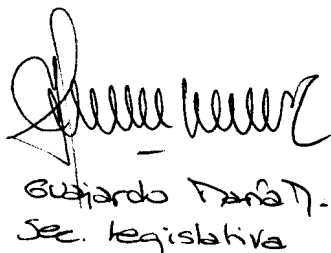 Guajardo María M.
Sec. Legislativa